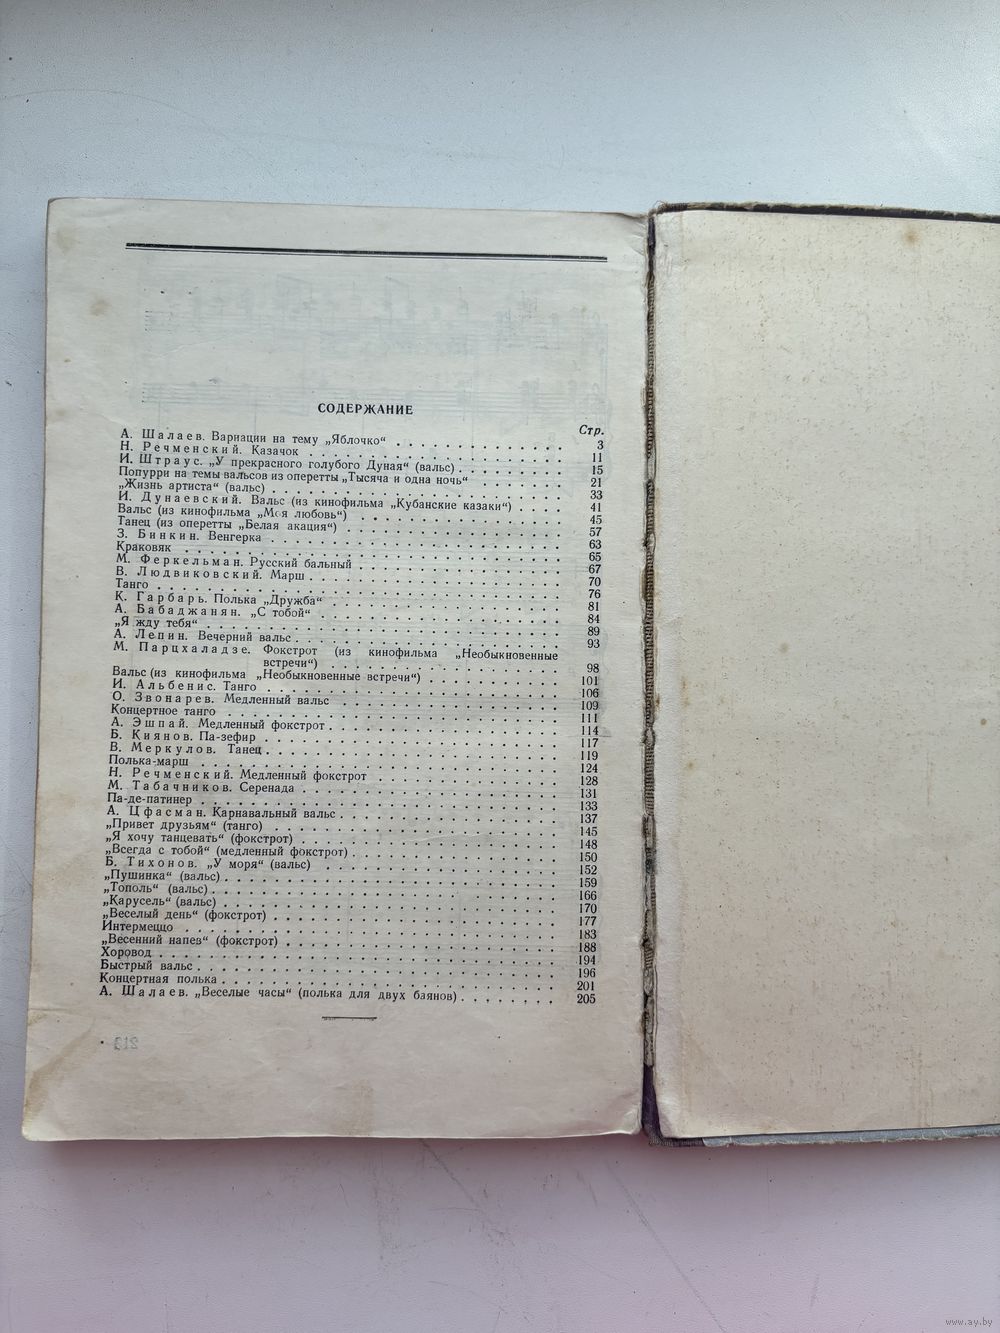 СОДЕРЖАНИЕ
Стр.
А. Шалаев. Вариации на тему „Яблочко“ 3
Н. Речменский. Казачок 11
И. Штраус. „У прекрасного голубого Дуная“ (вальс) 15
Попурри на темы вальсов из оперетты „Тысяча и одна ночь“ 21
„Жизнь артиста“ (вальс) 33
И. Дунаевский. Вальс (из кинофильма „Кубанские казаки“) 41
Вальс (из кинофильма „Моя любовь“) 45
Танец (из оперетты „Белая акация“) 57
З. Бинкин. Венгерка 63
Краковяк 65
М. Феркельман. Русский бальный 67
В. Людвиковский. Марш 70
Танго 76
К. Гарбарь. Полька „Дружба“ 81
А. Бабаджанян. „С тобой“ 84
„Я жду тебя“ 89
А. Лепин. Вечерний вальс 93
М. Парцхаладзе. Фокстрот (из кинофильма „Необыкновенные
встречи“) 98
Вальс (из кинофильма „Необыкновенные встречи“) 101
И. Альбенис. Танго 106
О. Звонарев. Медленный вальс 109
Концертное танго 111
А. Эшпай. Медленный фокстрот 114
Б. Киянов. Па-зефир 117
В. Меркулов. Танец 119
Полька-марш 124
Н. Речменский. Медленный фокстрот 128
М. Табачников. Серенада 131
Па-де-патинер 133
А. Цфасман. Карнавальный вальс 137
„Привет друзьям“ (танго) 145
„Я хочу танцевать“ (фокстрот) 148
„Всегда с тобой“ (медленный фокстрот) 150
Б. Тихонов. „У моря“ (вальс) 152
„Пушинка“ (вальс) 159
„Тополь“ (вальс) 166
„Карусель“ (вальс) 170
„Веселый день“ (фокстрот) 177
Интермеццо 183
„Весенний напев“ (фокстрот) 188
Хоровод 194
Быстрый вальс 196
Концертная полька 201
А. Шалаев. „Веселые часы“ (полька для двух баянов) 205
www.ay.by